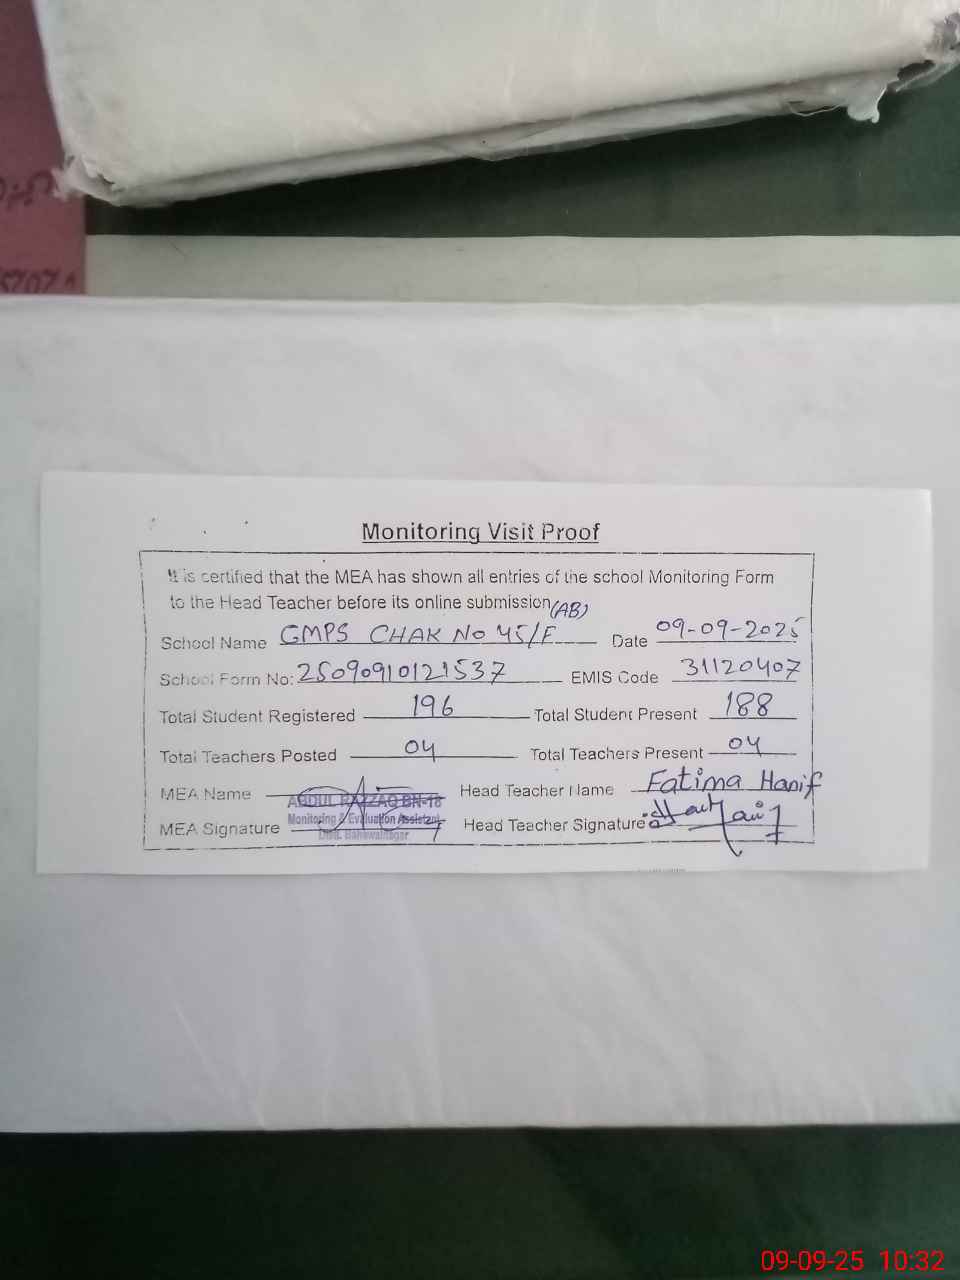 Monitoring Visit Proof
It is certified that the MEA has shown all entries of the school Monitoring Form
to the Head Teacher before its online submission
(AB)
School Name GMPS CHAK No 45/F Date 09-09-2025
School Form No: 25090910121537 EMIS Code 31120407
Total Student Registered 196 Total Student Present 188
Total Teachers Posted 04 Total Teachers Present 04
MEA Name ABDUL RAZZAQ BN-18 Head Teacher Name Fatima Hanif
Monitoring & Evaluation Assistant
MEA Signature Head Teacher Signature:
Distt. Bahawalnagar
09-09-25 10:32